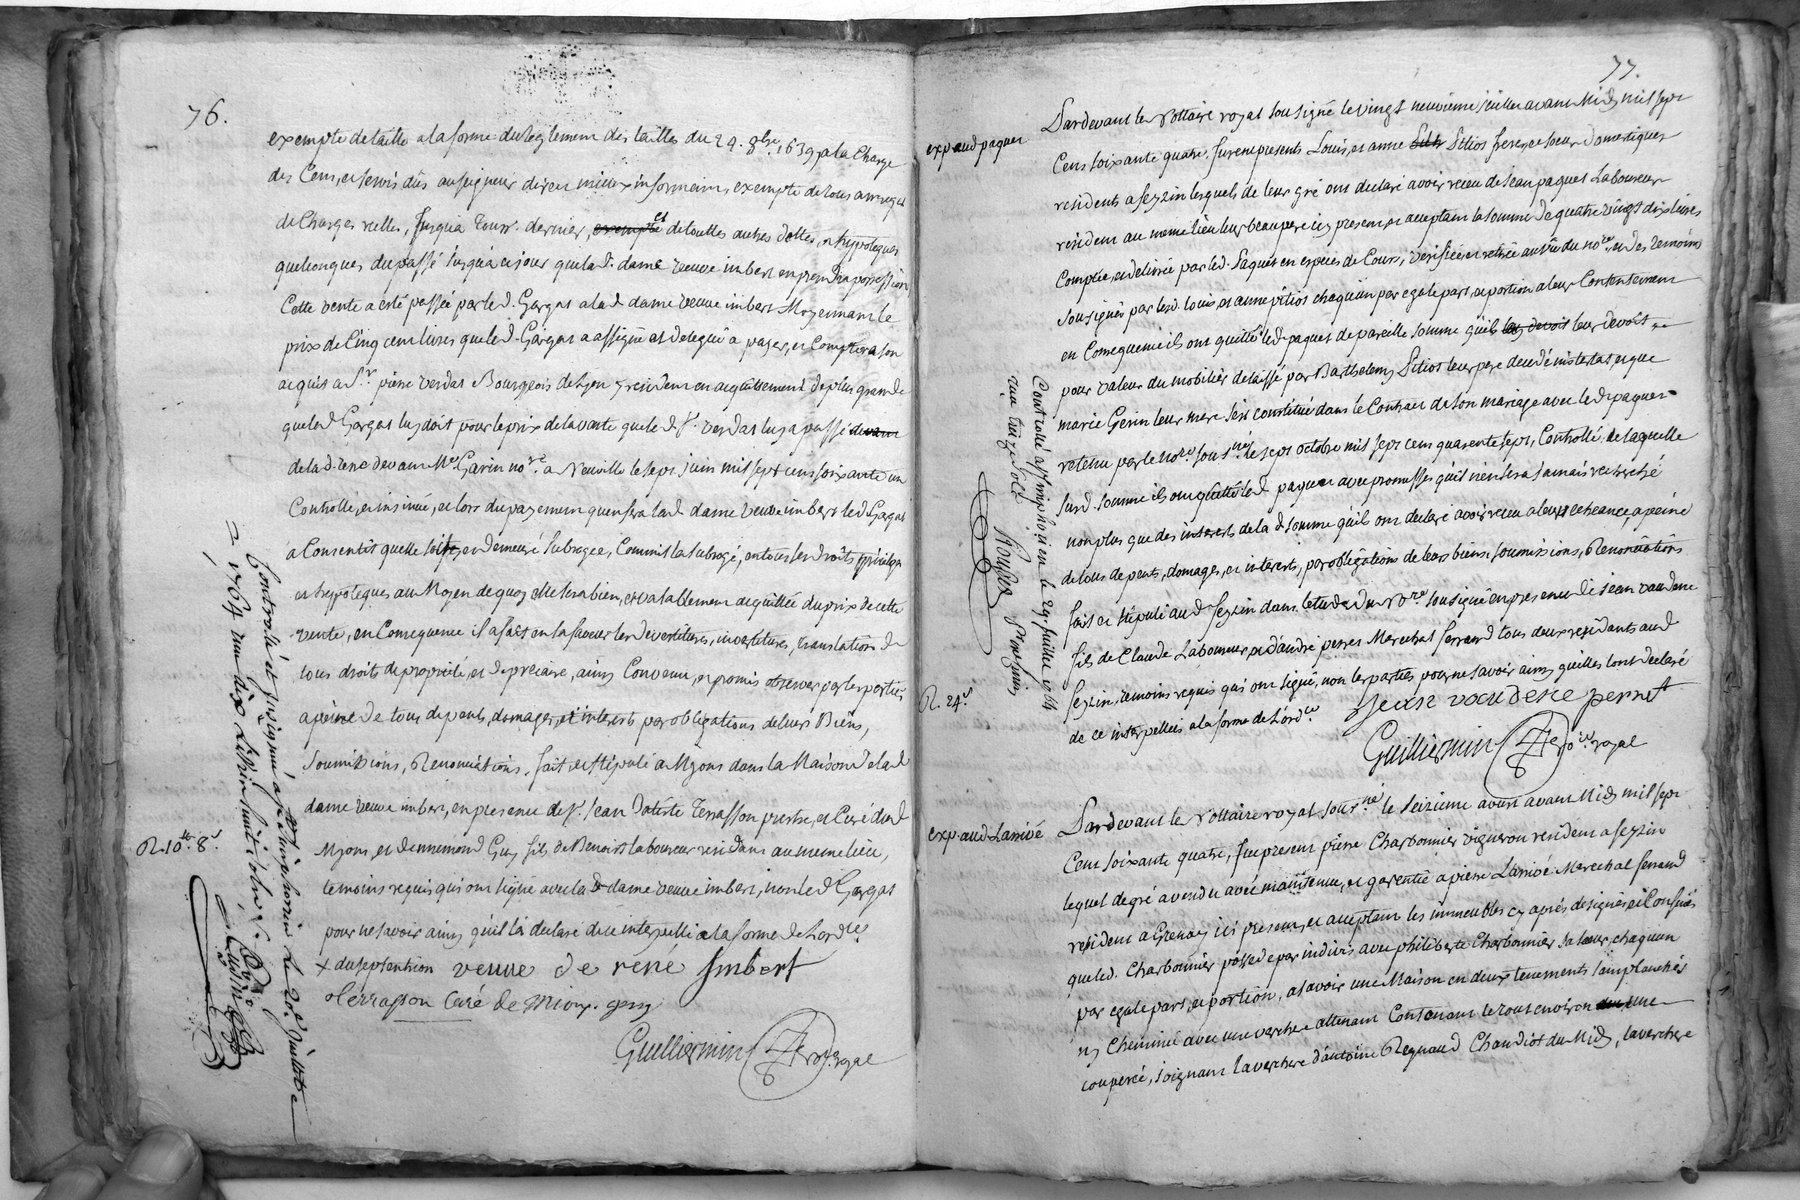 76.
exempte de taille a la forme du reglement des tailles du 24. 8bre. 1639, a la Charge
des Cens, et servis dûs au seigneur direct mieux informerim, exempte de tous arrerages
de Charges reelles, Jusqu'a Jour dernier, exempte et de touttes autres dettes, et hypoteques
quelconques du passé Jusqu'a ce jour que lad. dame veuve imbert en prendra possession
Cette vente a esté passée par led. Gargas a lad dame veuve imbert Moyennant le
prix de Cinq cens livres que led. Gargas a assigné et delegué a payer, et Compter a son
acquis a Sr. pierre verdat Bourgeois de Lyon y resident en acquittement de plus grande
que led Gargas luy doit pour le prix de la vente que led. Sr. verdat luy a passé devant
de lad. devant Me. Garin nore. a Neuville le sept juin mil sept cens soixante un
Controllé, et insinué, et lors du payement qu'en fera lad dame veuve imbert led Gargas
a Consentit qu'elle soit et demeure subrogée, Comme il la subroge, en tous les droits privileges
et hypoteques au Moyen de quoy elle sera bien, et valablement acquittée du prix de cette
vente, en Consequence il a fait en la faveur les devestitures, investitures, translations de
tous droits de proprieté, et de precaire, ainsy Convenu, et promis observer par les parties
a peine de tous depents, domages, et interests par obligations de leurs Biens,
Soumissions, Renonciations, fait et stipulé a Myons dans la Maison de lad
dame veuve imbert, en presence de Sr. Jean Batiste Terrasson prestre, et Curé dud
Myons, et d'ennemond Guy fils de Benoist laboureur residant au meme lieu,
temoins requis qui ont signé avec lad dame veuve imbert, non led Gargas
pour ne savoir ainsy qu'il la declaré de ce interpellé a la forme de Lordce.
+ du septentrion veuve de rené Jmbert
Terrasson Curé de Mions. guy
Guilliermin Nore. royal
R. 10lt. 8s.
Controllé et insinué a st simphorien le 20e. Juillet
1764
77.
exp. aud paquet
Pardevant le Nottaire royal soussigné le vingt neuvieme juillet avant Midy mil sept
Cens soixante quatre, furent presents Louis, et anne Pitios frere, et soeur domestiques
residents a feyzin lesquels de leur gré ont declaré avoir receu de Jean paquet Laboureur
resident au meme lieu leur beau pere icy present, et acceptant la somme de quatre vingt dix livres
Comptée, et delivrée par led. Paquet en especes de Cours, verifiée et retirée au vû du nore. et des temoins
soussignés par lesd. louis, et anne pitios chaquun par egale part, et portion a leur Contentement
en Consequence ils ont quitté led paquet de pareille somme qu'il les devoit leur devoit
pour valeur du mobilier delaissé par Barthelemy Pitiot leur pere decedé intestat, et que
marie Gerin leur mere s'est constituée dans le Contract de son mariage avec led paquet
retenu par le nore. sousné. le sept octobre mil sept cens quarente sept, Controllé, de laquelle
susd. somme ils ont quitté led paquet avec promesses qu'il n'en sera jamais recherché
non plus que des interests de la d somme qu'ils ont declaré avoir receu a leurs echeance, a peine
de tous depents, domages, et interests, par obligations de leurs biens, soumissions, Renonciations
fait et stipulé aud feyzin dans l'etude du Nore. soussigné en presence de jean vaudene
fils de Claude Laboureur, et d'andré pernet Marechal ferrand tous deux residants aud
feyzin, temoins requis qui ont signé, non les parties pour ne savoir ainsy qu'elles l'ont declaré
de ce interpellées a la forme de Lordce.
jean vaudene pernet
Guilliermin Nore. royal
R. 24s.
Controllé a st simphorien le 29 juillet 1764
reçu treize sols
exp. aud Larrivé
Pardevant le Nottaire royal sousné. le seizieme aoust avant Midy mil sept
Cens soixante quatre, fut present pierre Charbonnier vigneron resident a feyzin
lequel de gré a vendu avec maintenue, et garentie a pierre Larrivé Marechal ferrand
resident a Grenay ici present, et acceptant les immeubles cy aprés designés, et Confinés
que led. Charbonnier possede par indivis avec philiberte Charbonnier sa soeur, chaquun
par egale part, et portion, a savoir une Maison en deux tenements
ny Cheminée avec une verchere attenant Contenant le tout environ une
couperée, joignant la verchere d'antoine Reynaud Chaudiot du Midy, la verchere